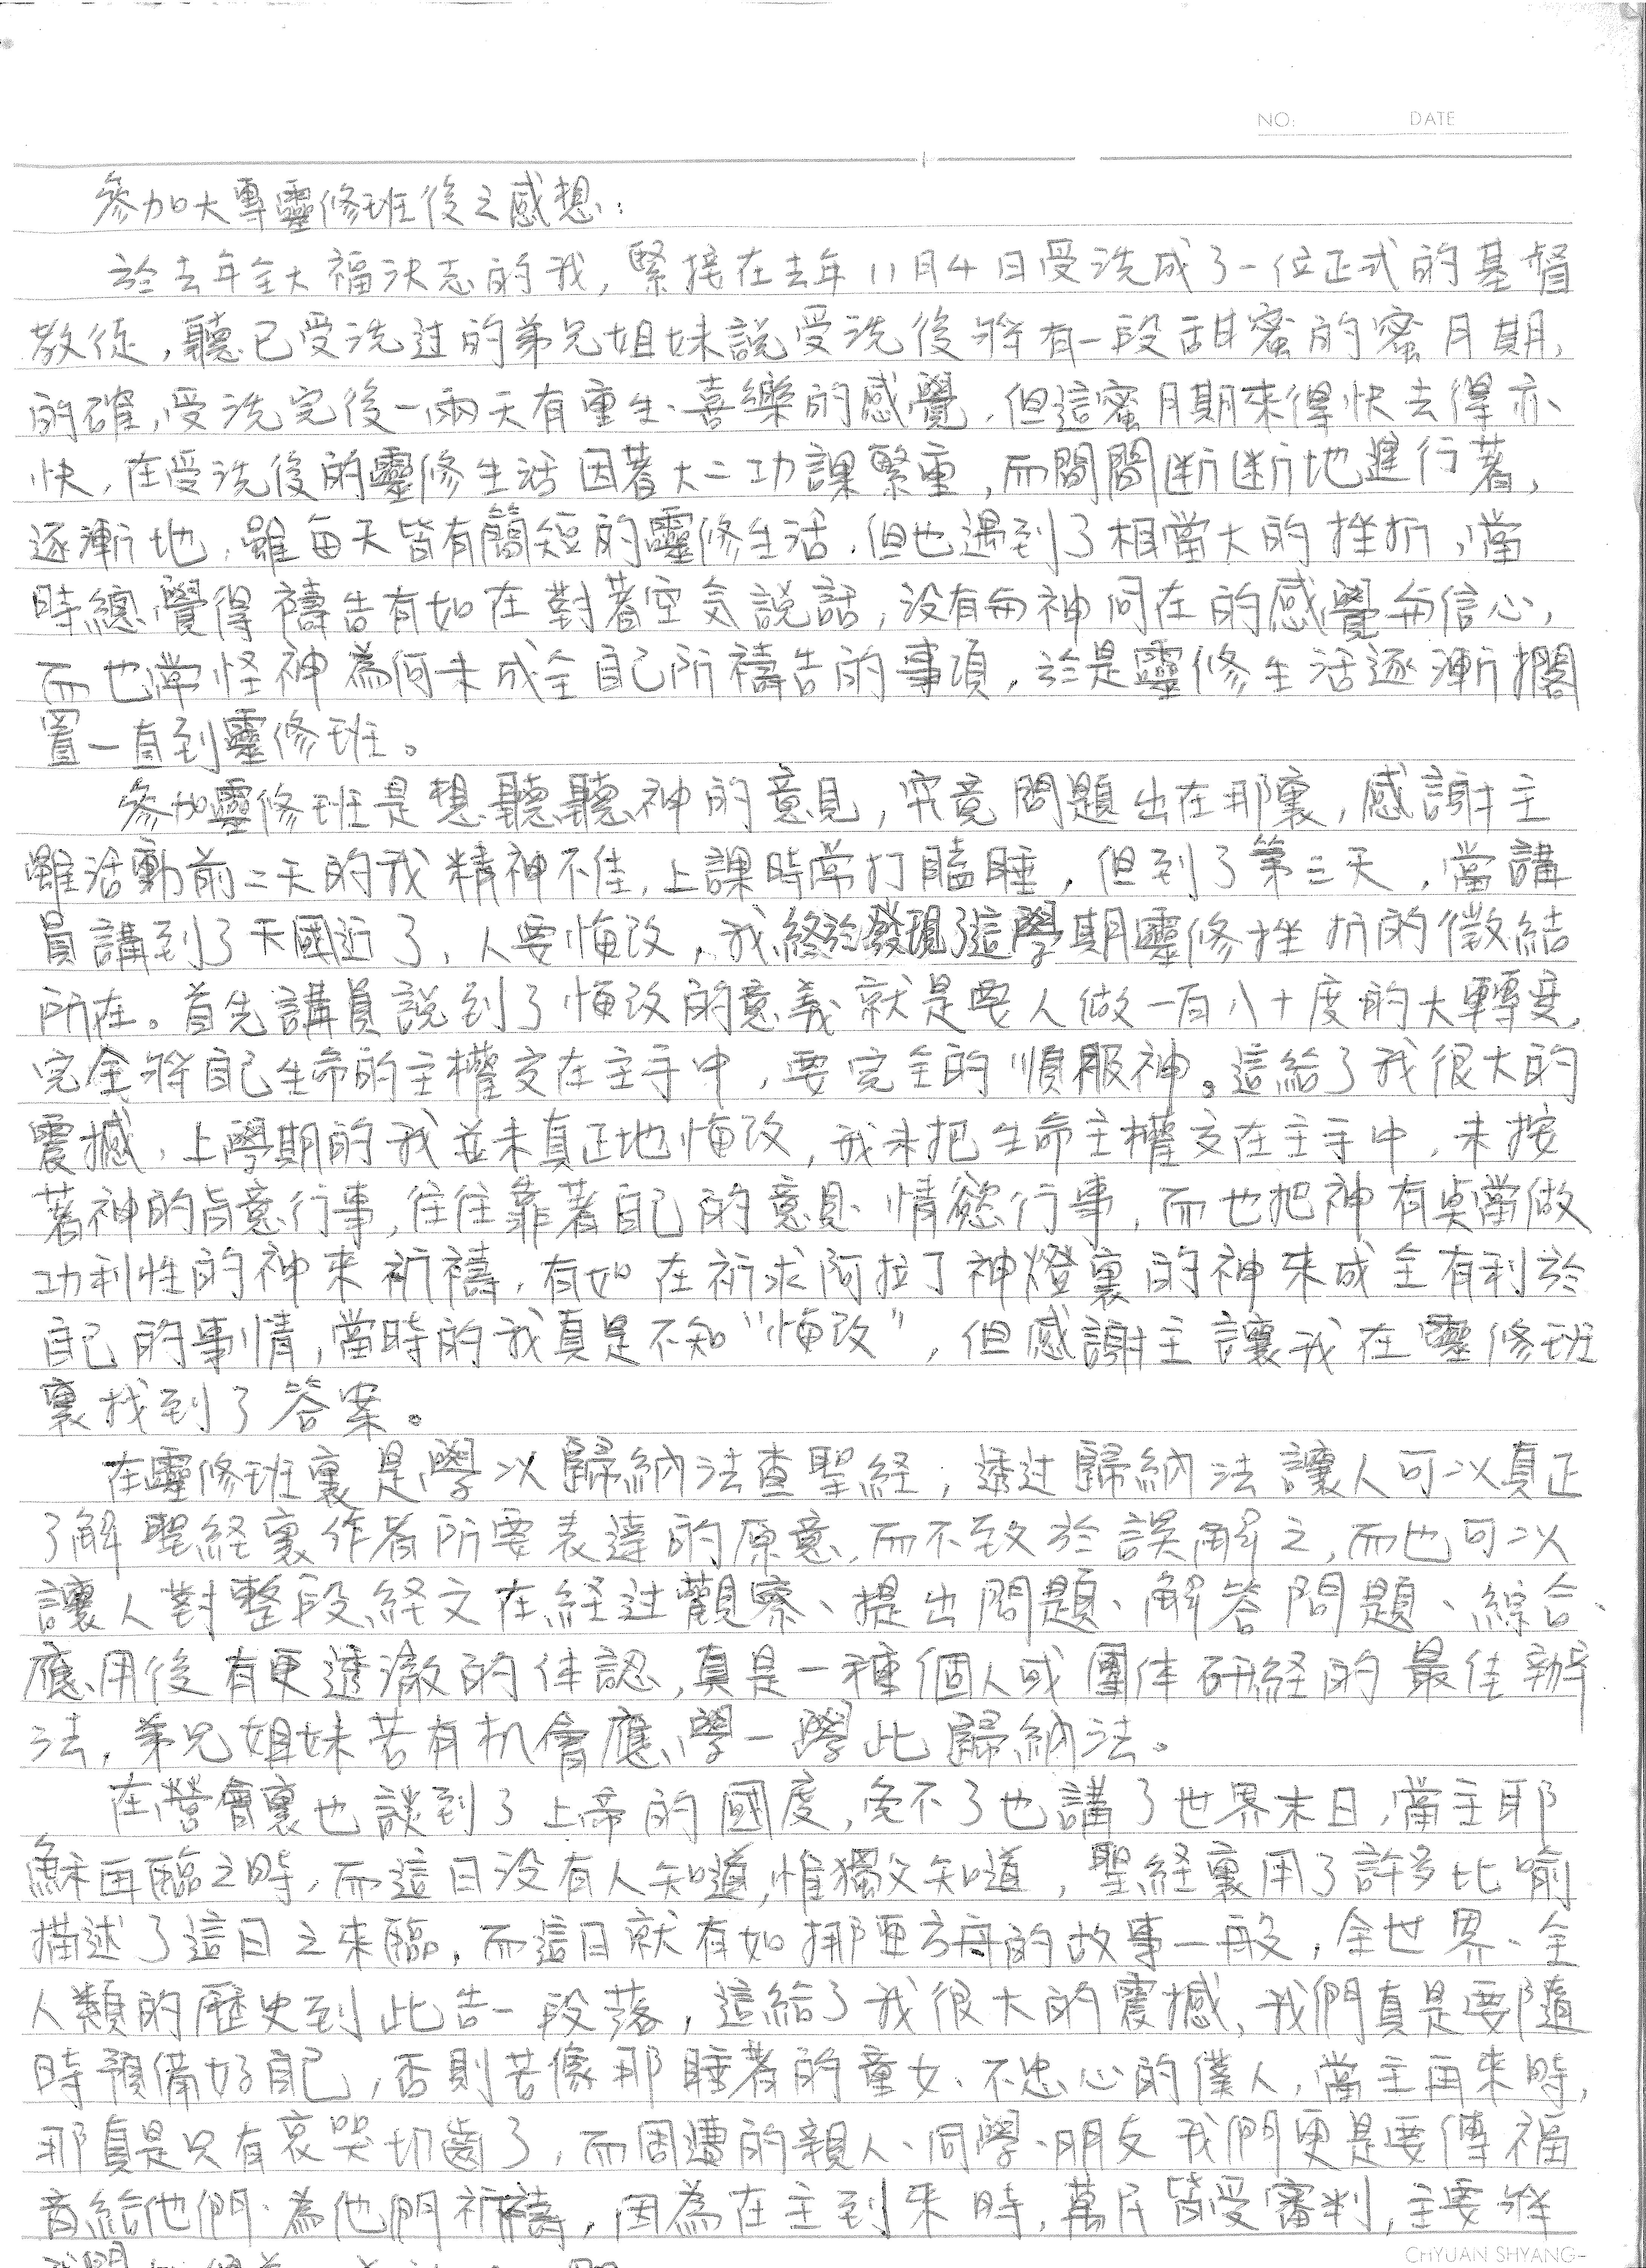 NO:　DATE
參加大專靈修班後之感想:
於去年全大福決志的我，緊接在去年11月4日受洗成了一位正式的基督
教徒，聽已受洗过的弟兄姐妹說受洗後將有一段甜蜜的蜜月期，
的確，受洗完後一兩天有重生、喜樂的感覺，但這蜜月期來得快去得亦
快，在受洗後的靈修生活因著大二功課繁重，而間間斷斷地進行著，
逐漸地，雖每天皆有簡短的靈修生活，但也遇到了相當大的挫折，當
時總覺得禱告有如在對著空気說話，沒有与神同在的感覺与信心，
而也常怪神為何未成全自己所禱告的事項，於是靈修生活逐漸擱
置一直到靈修班。
參加靈修班是想聽聽神的意見，究竟問題出在那裏，感謝主
雖活動前二天的我精神不佳，上課時常打瞌睡，但到了第三天，當講
員講到了天國近了，人要悔改，我終於發現了這學期靈修挫折的癥結
所在。首先講員說到了悔改的意義就是要人做一百八十度的大轉變，
完全將自己生命的主權交在主手中，要完全的順服神。這給了我很大的
震撼，上學期的我並未真正地悔改，我未把生命主權交在主手中，未按
著神的旨意行事，往往靠著自己的意見、情慾行事，而也把神有點當做
功利性的神來祈禱，有如在祈求阿拉丁神燈裏的神來成全有利於
自己的事情，當時的我真是不知"悔改"，但感謝主讓我在靈修班
裏找到了答案。
在靈修班裏是學以歸納法查聖経，透过歸納法讓人可以真正
了解聖経裏作者所要表達的原意，而不致於誤解之，而也可以
讓人對整段経文在経过觀察、提出問題、解答問題、綜合、
應用後有更透澈的体認，真是一種個人或團体研経的最佳辦
法，弟兄姐妹若有机會應學一學此歸納法。
在營會裏也談到了上帝的國度，免不了也講了世界末日，當主耶
穌再臨之時，而這日沒有人知道，惟獨父知道，聖経裏用了許多比喻
描述了這日之來臨，而這日就有如挪亞方舟的故事一般，全世界、全
人類的歷史到此告一段落，這給了我很大的震撼，我們真是要隨
時預備好自己，否則若像那睡著的童女、不忠心的僕人，當主再來時，
那真是只有哀哭切齒了，而周遭的親人、同學、朋友我們更是要傳福
音給他們、為他們祈禱，因為在主到來時，萬民皆受審判，主要將
CHYUAN SHYANG-